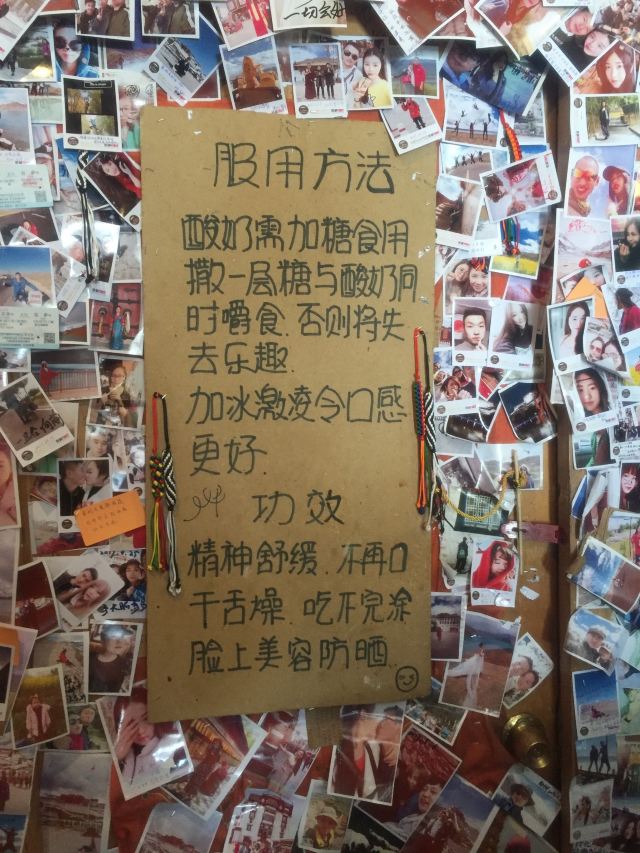 服用方法
酸奶需加糖食用
撒一层糖与酸奶同
时嚼食.否则将失
去乐趣.
加冰激凌令口感
更好.
功效
精神舒缓.不再口
干舌燥.吃不完涂
脸上美容防晒.